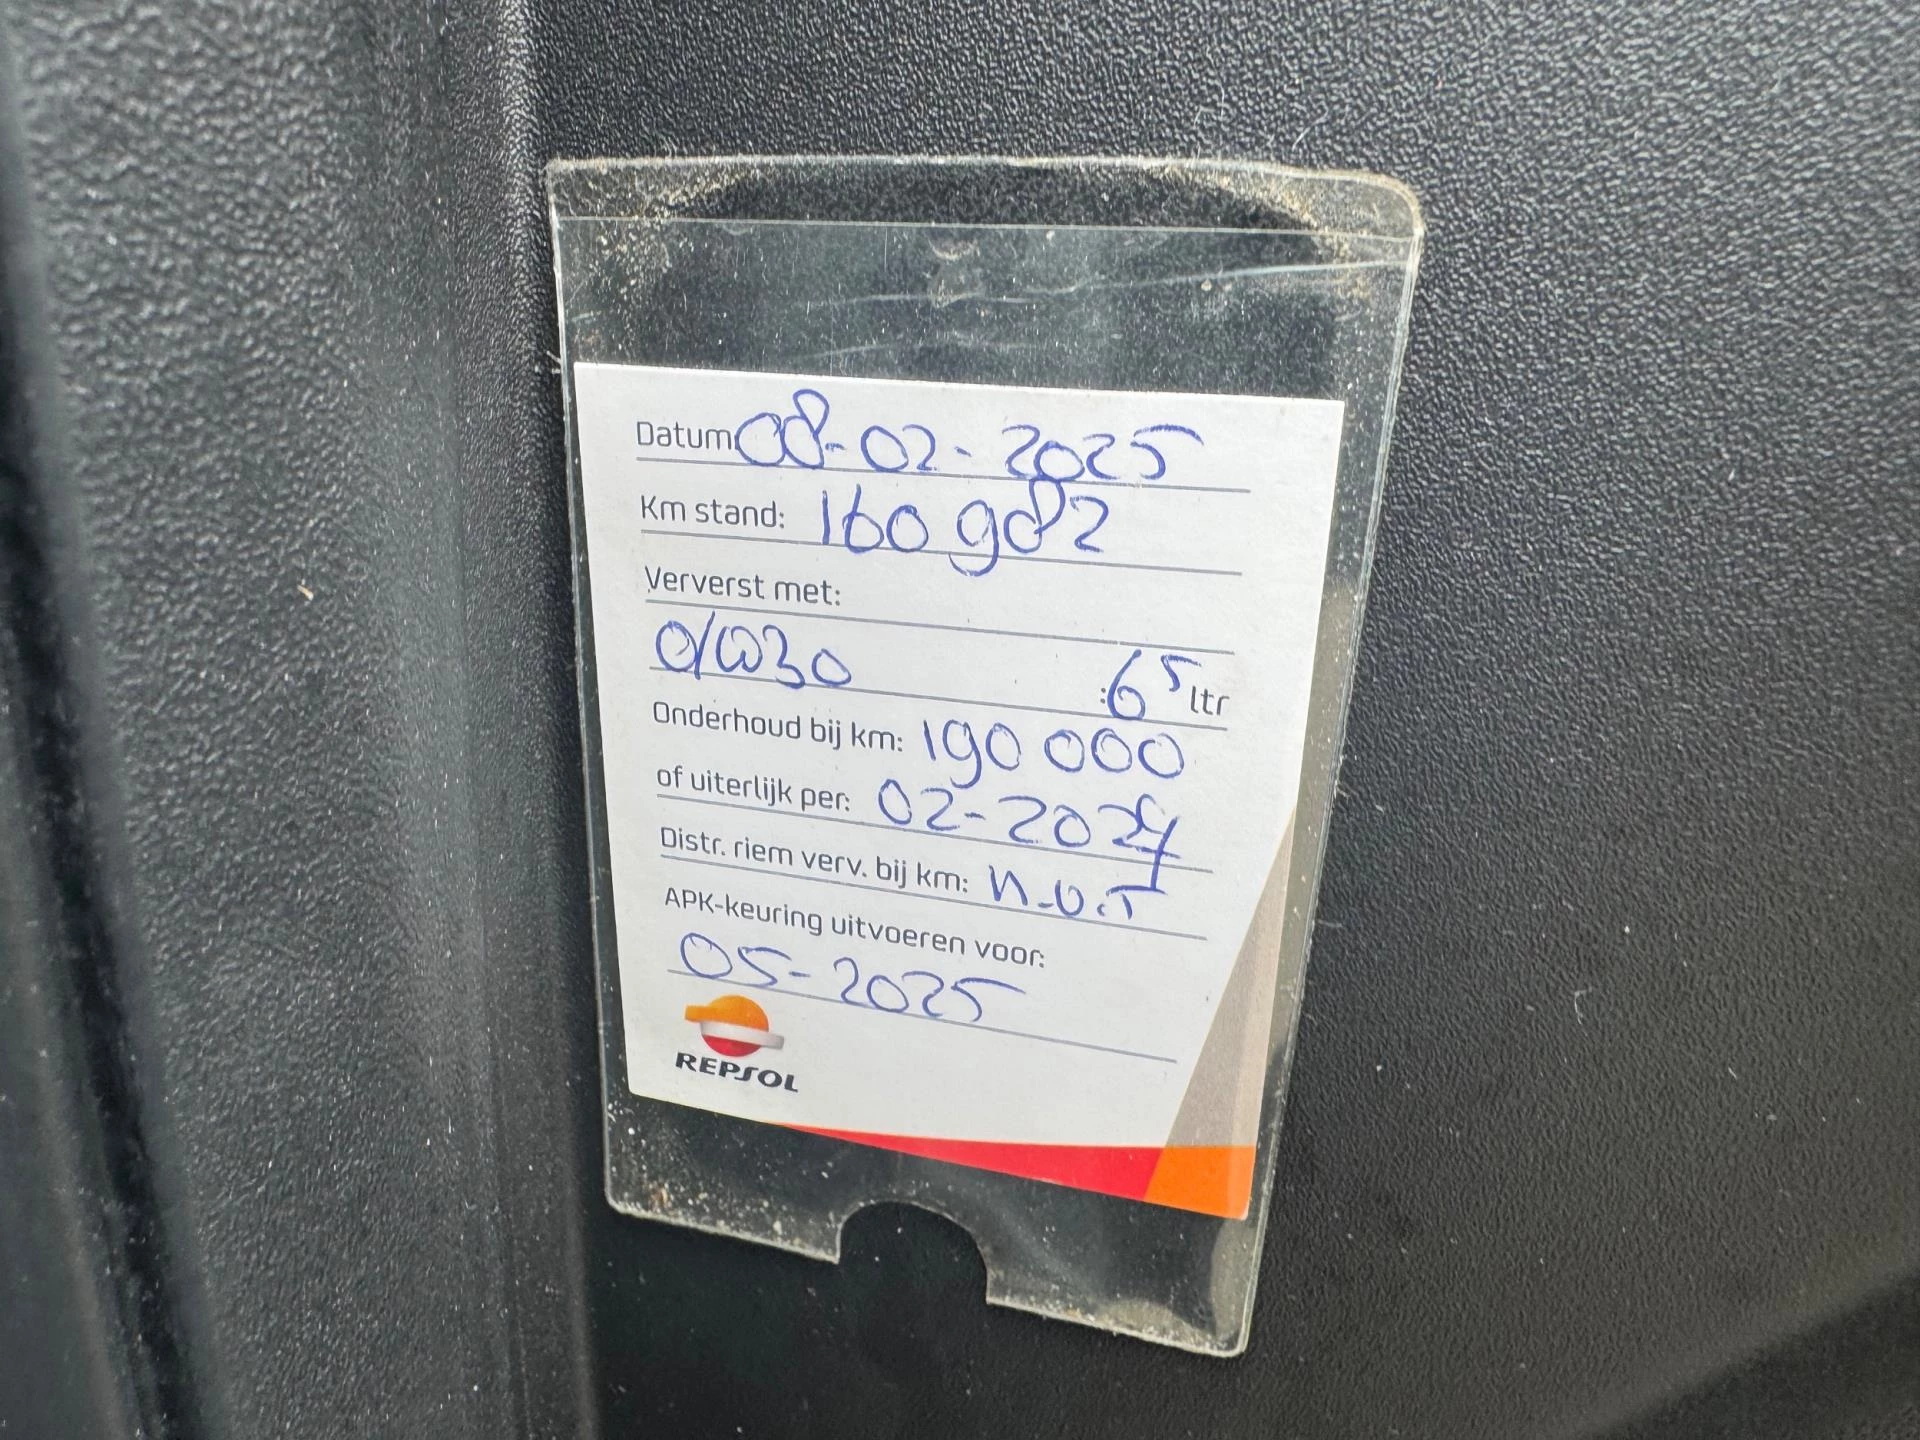 Datum 08-02-2025
Km stand: 160 982
Ververst met:
0/W30 :6⁵ ltr
Onderhoud bij km: 190 000
of uiterlijk per: 02-2027
Distr. riem verv. bij km: n.v.T
APK-keuring uitvoeren voor:
05-2025
REPSOL